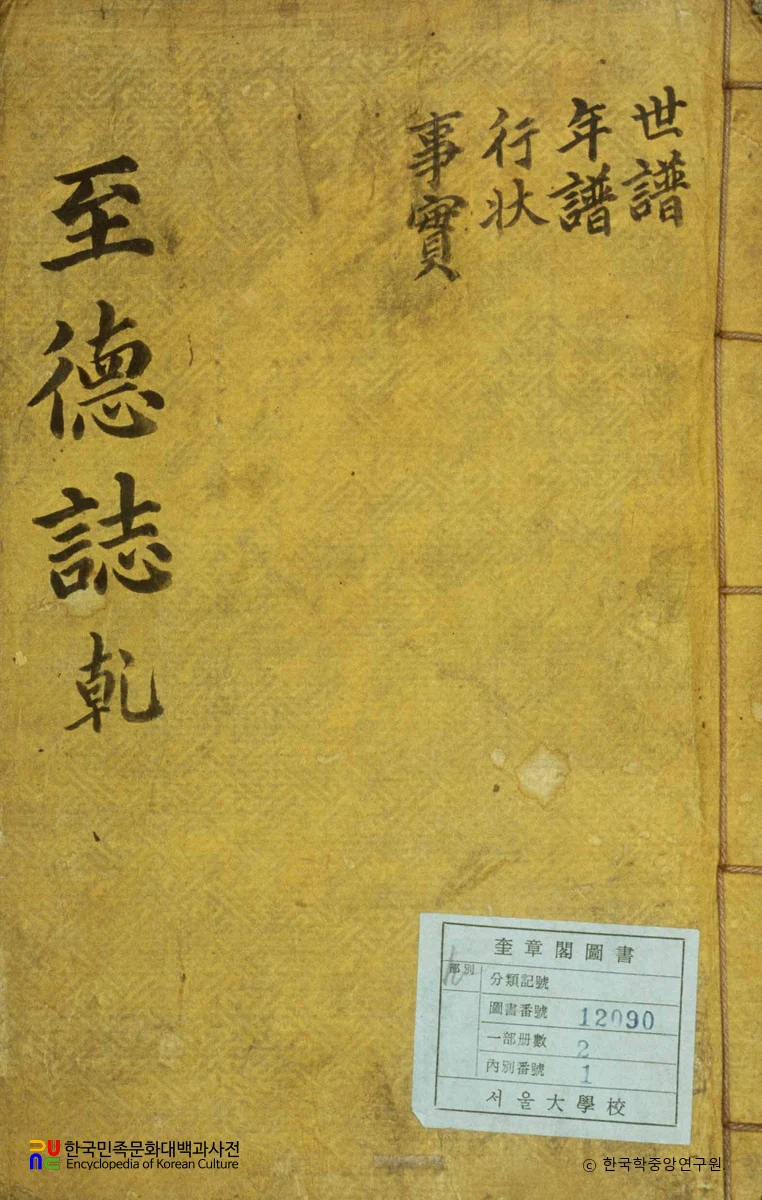 世譜
年譜
行狀
事實
至德誌 乾
奎章閣圖書
部別
分類記號
圖書番號 12090
一部冊數 2
內別番號 1
서울大學校
한국민족문화대백과사전
Encyclopedia of Korean Culture
© 한국학중앙연구원